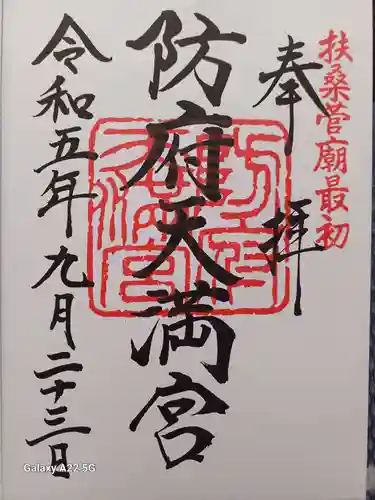 扶桑菅廟最初
奉拝
防府天満宮
令和五年九月二十三日
Galaxy A22 5G